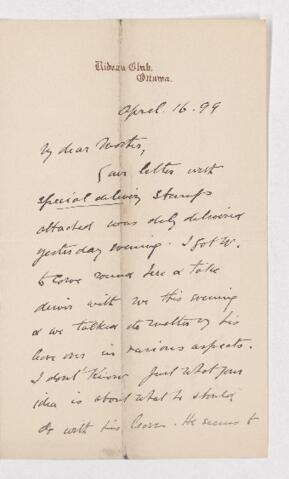 Rideau Club.
Ottawa.
April. 16. 99
My dear
Your letter with
special delivery stamps
attached was duly delivered
yesterday evening. I got W.
to come round here & take
dinner with me this evening
& we talked the matter of his
leave over in various aspects.
I don't know just what your
idea is about what he should
do with his leave. He seems to